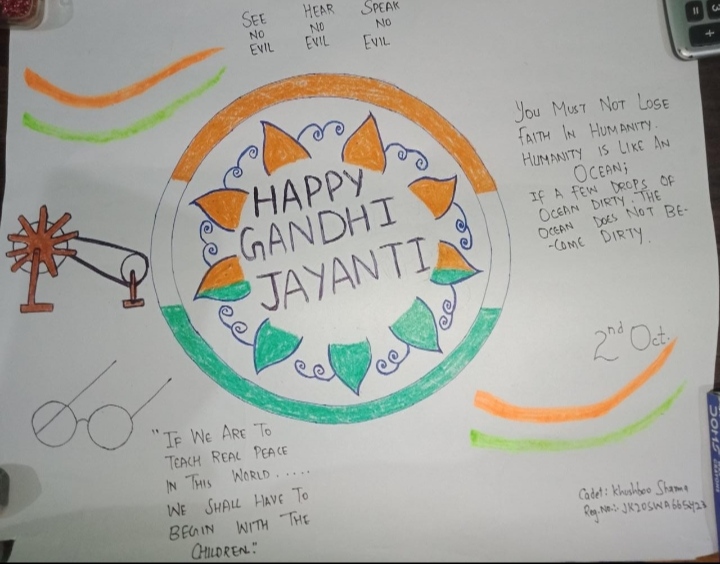 SEE HEAR SPEAK
NO NO NO
EVIL EVIL EVIL
YOU MUST NOT LOSE
FAITH IN HUMANITY.
HUMANITY IS LIKE AN
OCEAN;
IF A FEW DROPS OF
OCEAN DIRTY. THE
OCEAN DOES NOT BE-
-COME DIRTY.
HAPPY
GANDHI
JAYANTI
2nd Oct.
"IF WE ARE TO
TEACH REAL PEACE
IN THIS WORLD.....
WE SHALL HAVE TO
BEGIN WITH THE
CHILDREN."
Cadet: Khushboo Sharma
Reg.No.:-